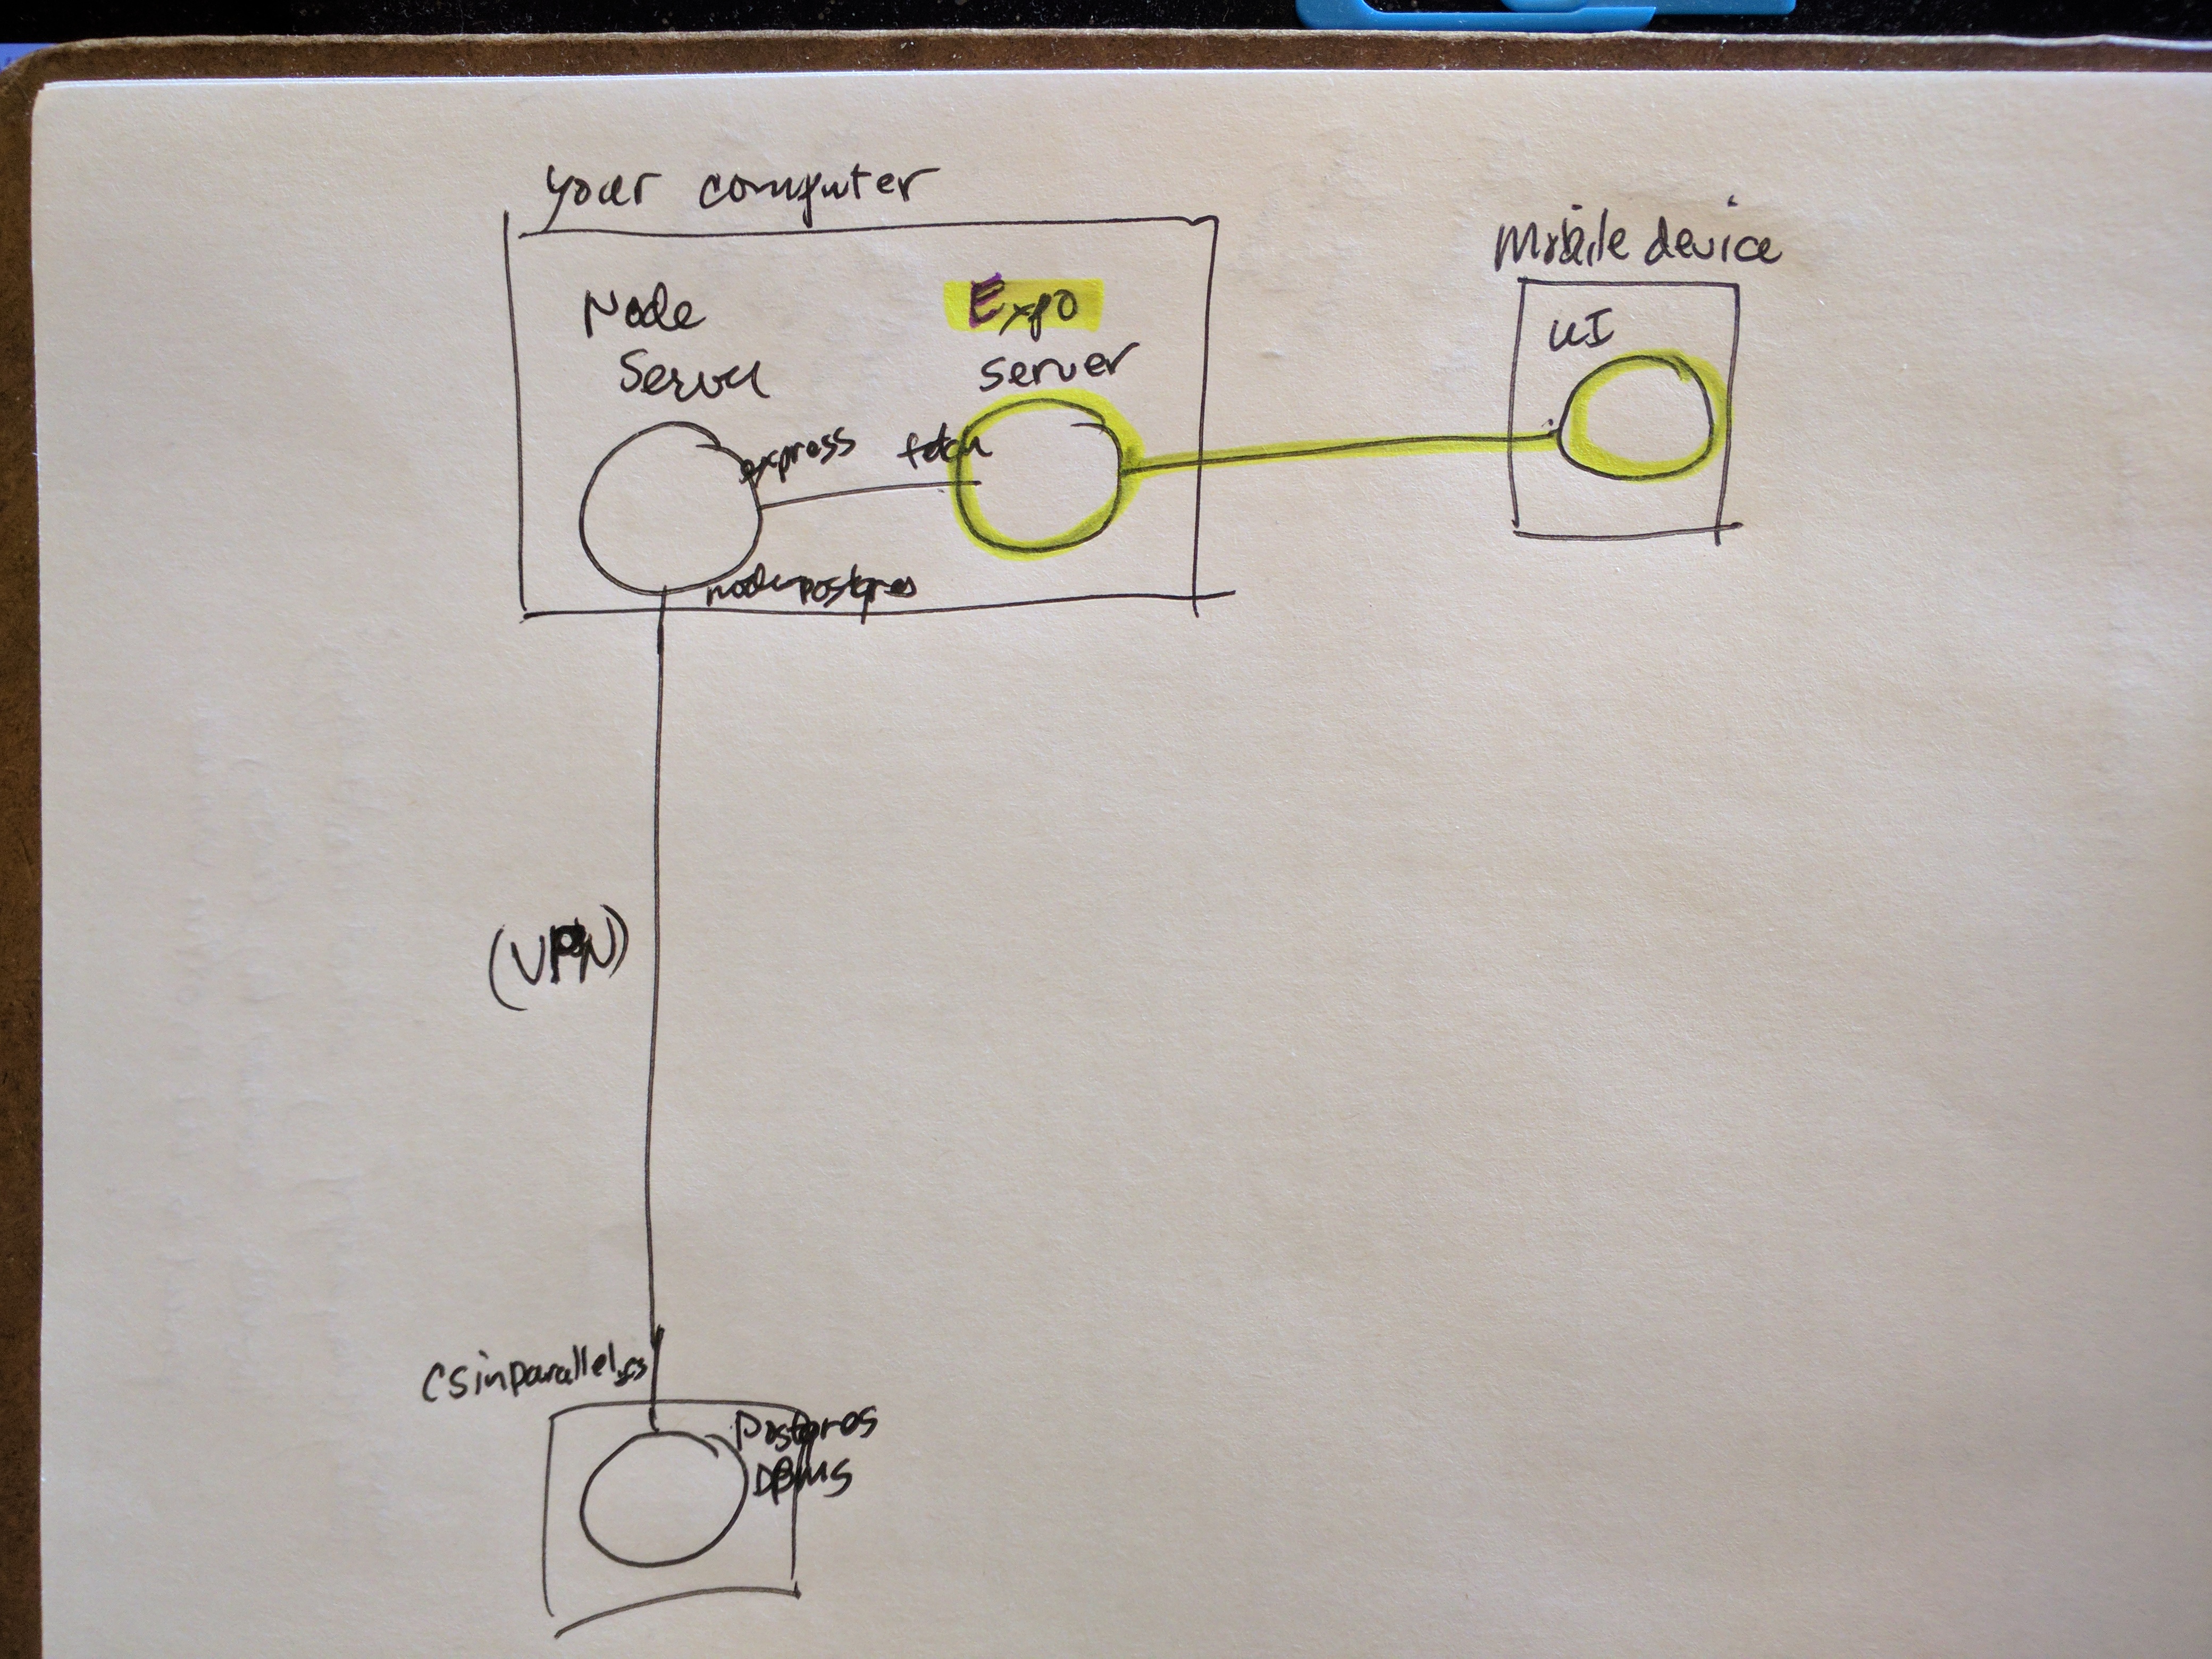 your computer
Mobile device
Node
Server
Expo
server
UI
express
fetch
node-postgres
(VPN)
csinparallel.cs
Postgres
DBMS